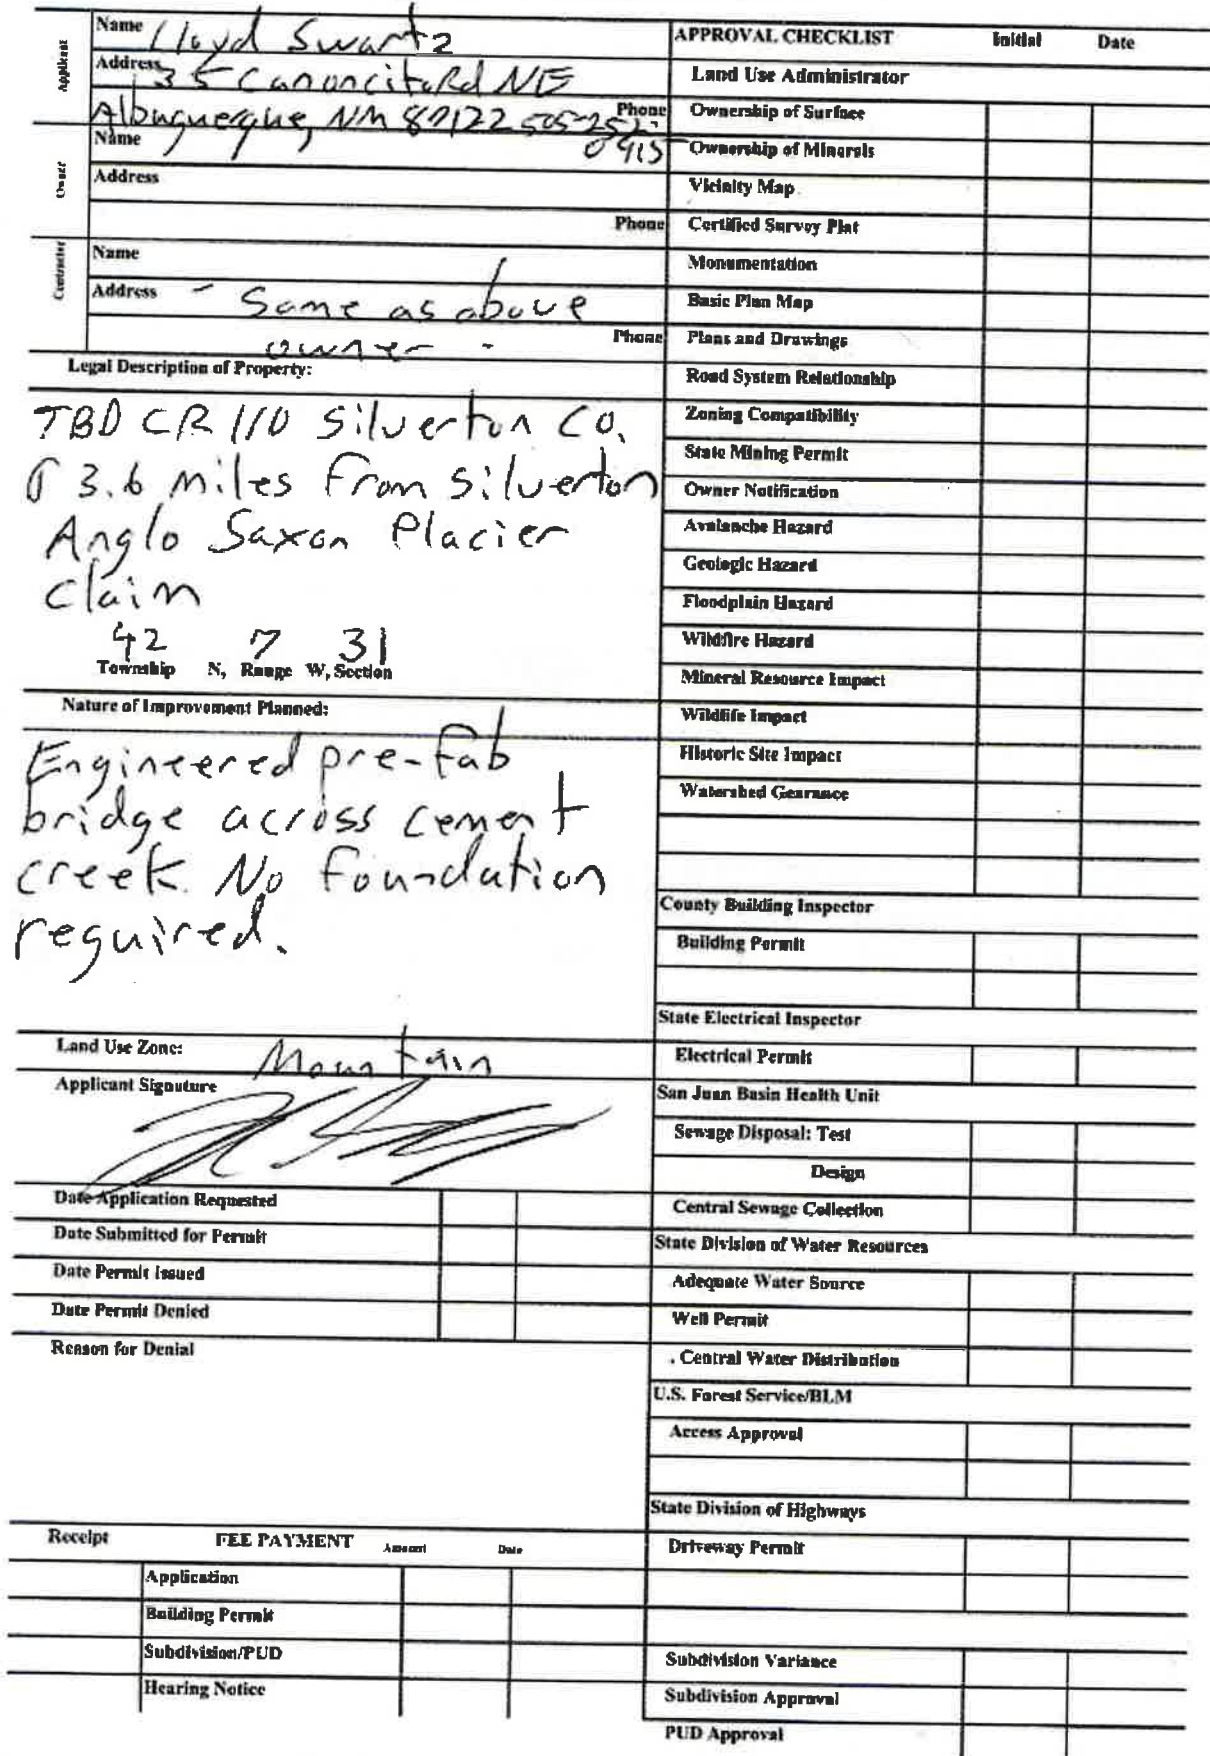 Applicant
Name Lloyd Swartz
Address 135 Canoncito Rd NE
Albuquerque, NM 87122 Phone 505-252-
0915
Owner
Name
Address
Phone
Contractor
Name
Address - Same as above
owner - Phone
Legal Description of Property:
TBD CR 110 Silverton CO.
3.6 miles from silverton
Anglo Saxon Placier
Claim
42 7 31
Township N, Range W, Section
Nature of Improvement Planned:
Engineered pre-fab
bridge across cement
creek. No foundation
required.
Land Use Zone: Mountain
Applicant Signature
Date Application Requested
Date Submitted for Permit
Date Permit Issued
Date Permit Denied
Reason for Denial
Receipt FEE PAYMENT Amount Date
Application
Building Permit
Subdivision/PUD
Hearing Notice
APPROVAL CHECKLIST Initial Date
Land Use Administrator
Ownership of Surface
Ownership of Minerals
Vicinity Map
Certified Survey Plat
Monumentation
Basic Plan Map
Plans and Drawings
Road System Relationship
Zoning Compatibility
State Mining Permit
Owner Notification
Avalanche Hazard
Geologic Hazard
Floodplain Hazard
Wildfire Hazard
Mineral Resource Impact
Wildlife Impact
Historic Site Impact
Watershed Gearance
County Building Inspector
Building Permit
State Electrical Inspector
Electrical Permit
San Juan Basin Health Unit
Sewage Disposal: Test
Design
Central Sewage Collection
State Division of Water Resources
Adequate Water Source
Well Permit
. Central Water Distribution
U.S. Forest Service/BLM
Access Approval
State Division of Highways
Driveway Permit
Subdivision Variance
Subdivision Approval
PUD Approval